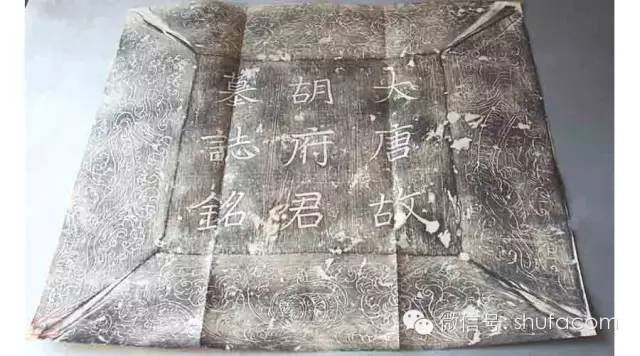 大唐故
胡府君
墓誌銘
微信号: shufacom